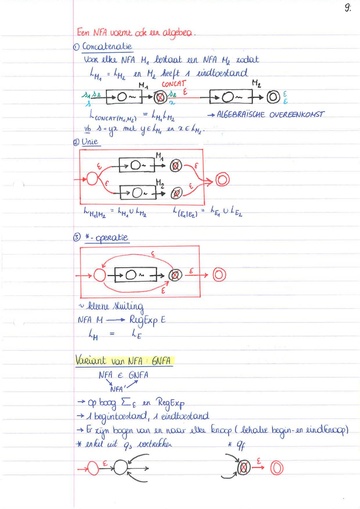 9.
Een NFA vormt ook een algebra.
① Concatenatie
Voor elke NFA M₁ bestaat een NFA M₂ zodat
L_M₁ = L_M₂ en M₂ heeft 1 eindtoestand
M₁ CONCAT M₂
ε
L_CONCAT(M₁M₂) = L_M₁L_M₂ → ALGEBRAÏSCHE OVEREENKOMST
② Unie
M₁
ε ε
ε ε
M₂
L_M₁|M₂ = L_M₁ ∪ L_M₂ L_(E₁|E₂) = L_E₁ ∪ L_E₂
③ *-operatie
ε
ε
ε
~ kleene sluiting
NFA M → RegExp E
L_M = L_E
Variant van NFA: GNFA
NFA ∈ GNFA
NFA'
→ op boog Σ_ε en RegExp
→ 1 begintoestand, 1 eindtoestand
→ Er zijn bogen van en naar elke knoop (behalve begin- en eindknoop)
* enkel uit q_s vertrekken * q_f
ε ε